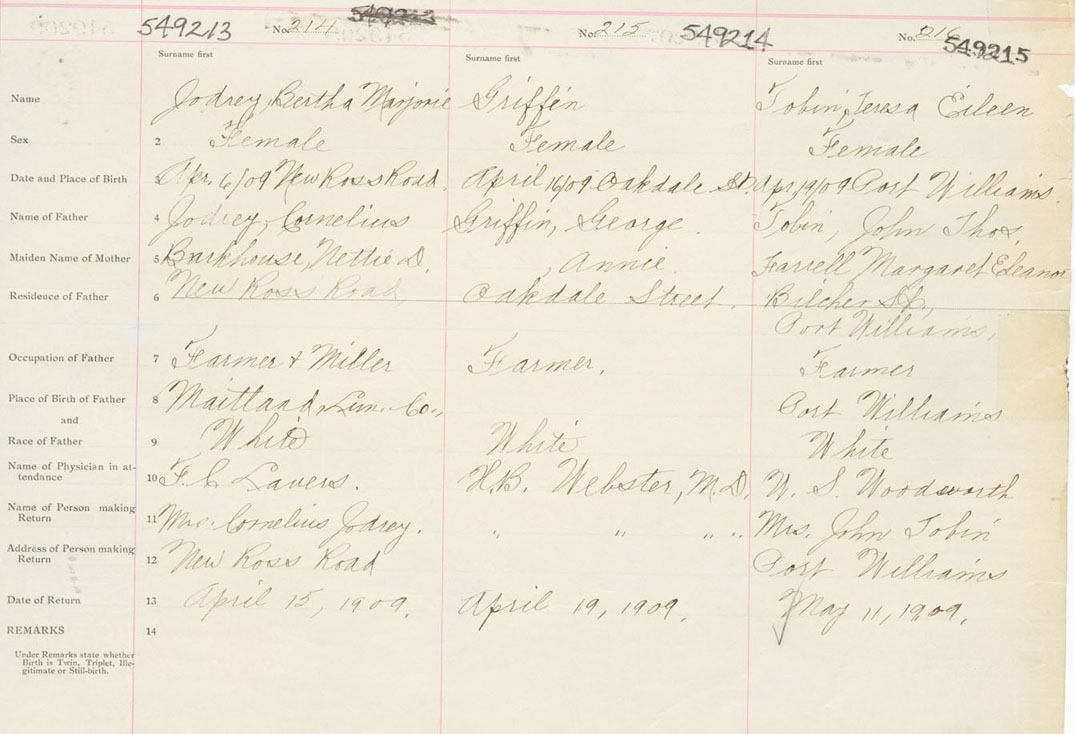 549213 No. 214 No. 215 549214 No. 216 549215
Surname first Surname first Surname first
Name Jodrey, Bertha Marjorie Griffin Tobin, Teresa Eileen
Sex 2 Female Female Female
Date and Place of Birth 3 Apr. 6/09 New Ross Road. April 16/09 Oakdale St. Apr. 19/09 Port Williams.
Name of Father 4 Jodrey, Cornelius Griffin, George. Tobin, John Thos.
Maiden Name of Mother 5 Barkhouse, Nettie D. , Annie. Farrell Margaret Eleanor
Residence of Father 6 New Ross Road Oakdale Street. Belcher St.,
Port Williams,
Occupation of Father 7 Farmer & Miller Farmer. Farmer
Place of Birth of Father 8 Maitland, Lun. Co., Port Williams
and
Race of Father 9 White White White
Name of Physician in at-
tendance 10 F. C. Lavers. H.B. Webster, M.D. W. S. Woodworth
Name of Person making
Return 11 Mrs. Cornelius Jodrey. " " " " Mrs. John Tobin
Address of Person making
Return 12 New Ross Road Port Williams
Date of Return 13 April 15, 1909. April 19, 1909. May 11, 1909.
REMARKS 14
Under Remarks state whether
Birth is Twin, Triplet, Ille-
gitimate or Still-birth.